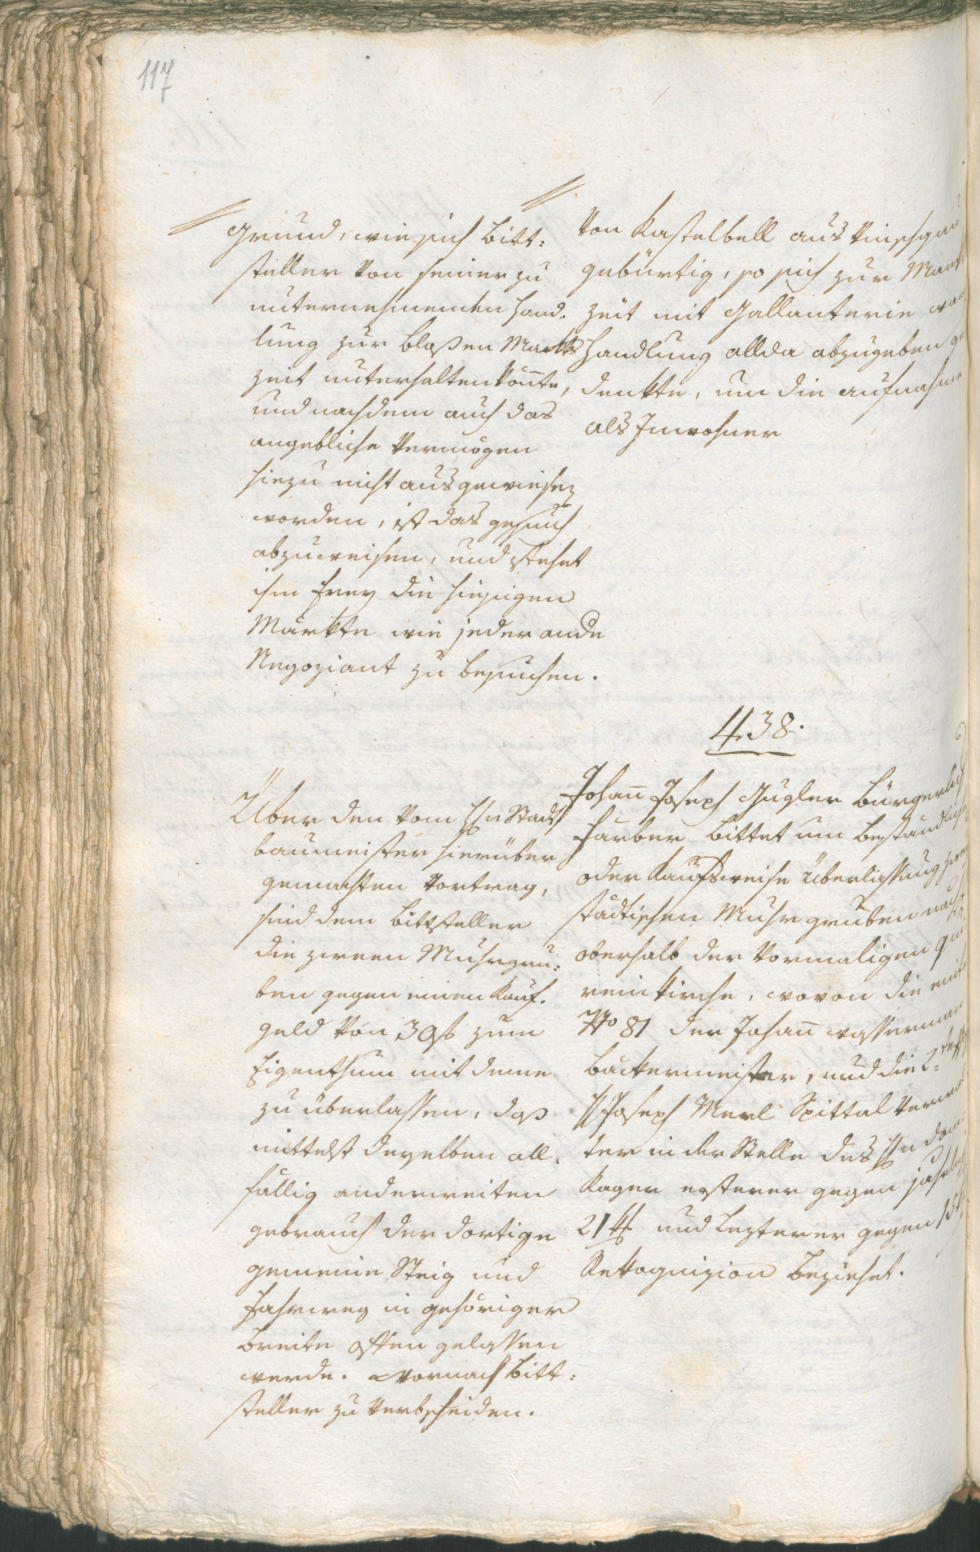 117
Grund, wie sich Bitt:
steller von seiner zu
unternehmenden Hand.
lung zur bloßen Markts
zeit unterhalten könnte,
und nachdem auch das
angebliche Vermögen
hiezu nicht ausgewiesen
worden, ist das Gesuch
abzuweisen, und stehet
ihm frey die hiesigen
Märkte wie jeder ande
Negoziant zu besuchen.
von Kastelbell aus Vinschgau
gebürtig, so sich zur Markt
zeit mit Gallanterie
Handlung allda abzugeben
denkte, um die Aufnahme
als Inwohner
438.
Über den vom Hn Stadt
baumeister hierüber
gemachten Vortrag,
sind dem Bittsteller
die zween Muhrgru:
ben gegen einen Kauf.
geld von 30 f zum
Eigenthum mit deme
zu überlassen, daß
mittelst derselben all.
fällig anderweiten
Gebrauch der dortige
gemeine Steig und
Fahrweg in gehöriger
Breite offen gelassen
werde. Wornach Bitt:
steller zu verbscheiden.
Johann Joseph Gugler bürgerlich
Färber bittet um beständliche
oder Kaufsweise Überlassung
städtischen Muhrgruben
oberhalb der vormaligen
reinkirche, wovon die
No 81 der Johann Wasserman
Beckermeister, und die 2te
H Joseph Merl Spittal Verwal
ter in der Stelle des Hn
Kager ersterer gegen
21 xr und lezterer gegen 15
Rekognizion beziehet.